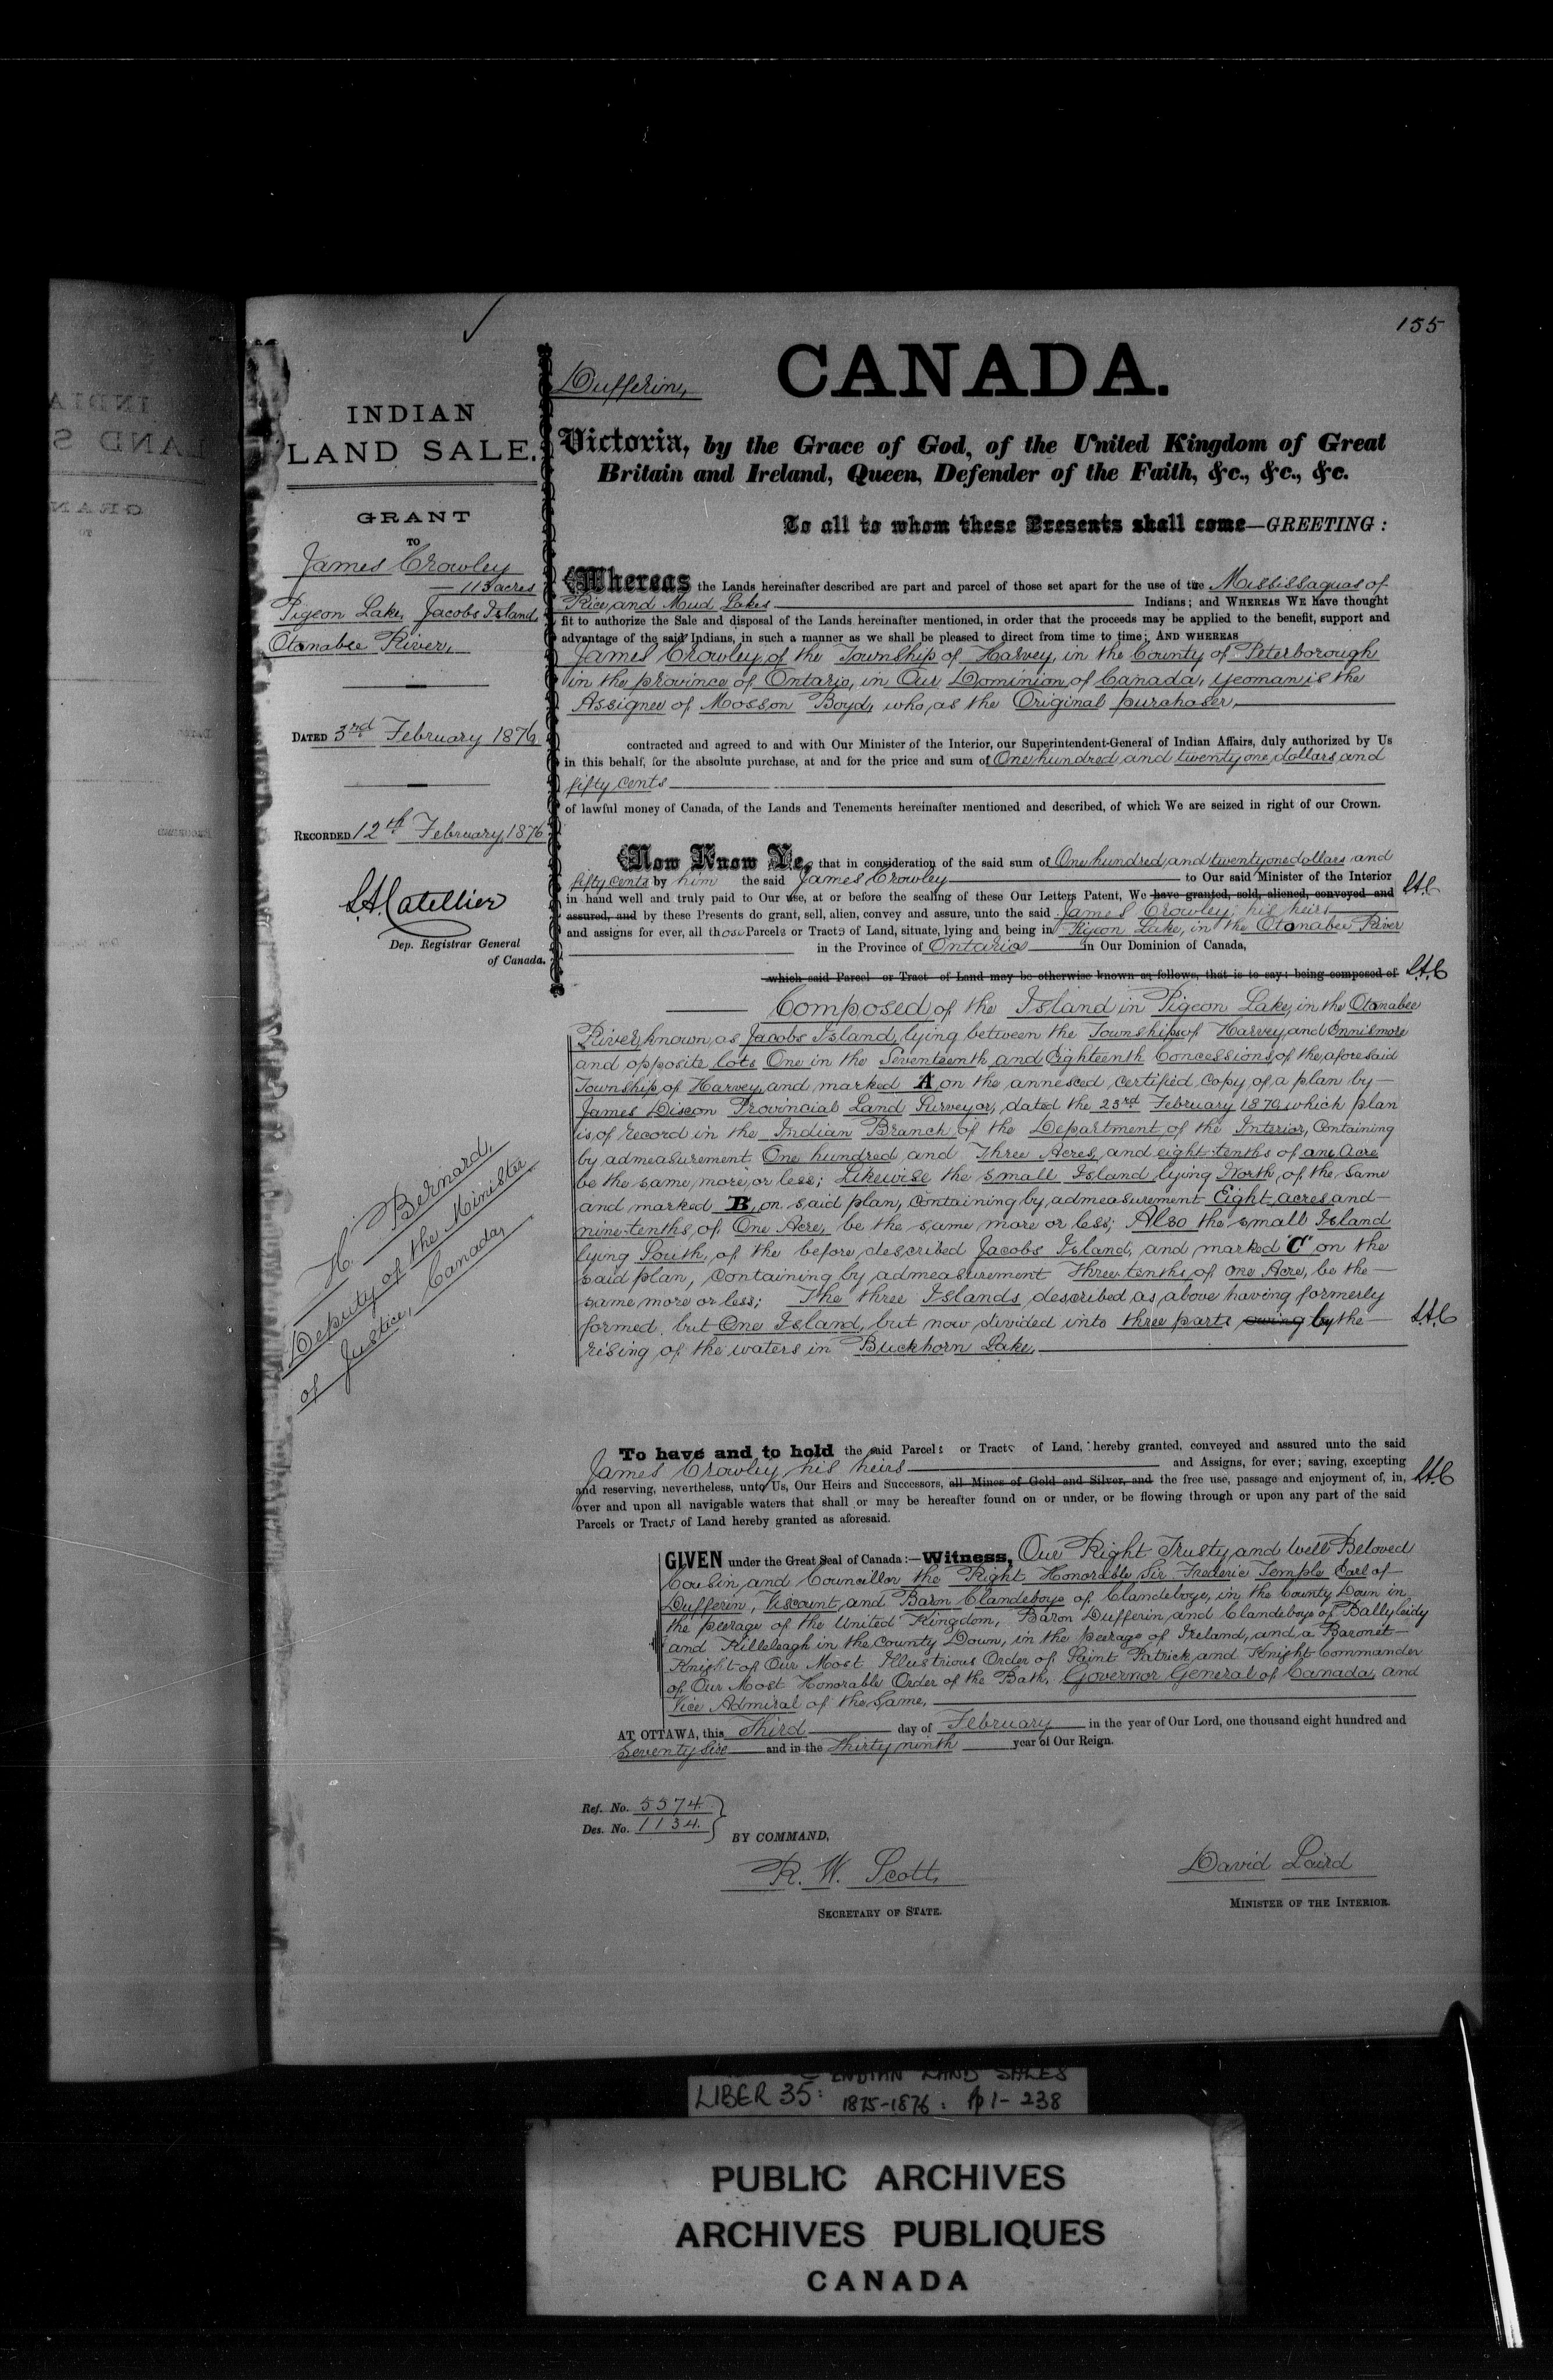 155
Dufferin,
CANADA.
INDIAN
LAND SALE.
GRANT
TO
James Crowley
113 acres
Pigeon Lake, Jacobs Island,
Otonabee River,
DATED 3rd February 1876
RECORDED 12th February, 1876
L.A. Catellier
Dep. Registrar General
of Canada.
H. Bernard,
Deputy of the Minister
of Justice, Canada,
Victoria, by the Grace of God, of the United Kingdom of Great
Britain and Ireland, Queen, Defender of the Faith, &c., &c., &c.
To all to whom these Presents shall come—GREETING:
Whereas the Lands hereinafter described are part and parcel of those set apart for the use of the Mississaguas of
Rice, and Mud Lakes Indians; and WHEREAS WE have thought
fit to authorize the Sale and disposal of the Lands hereinafter mentioned, in order that the proceeds may be applied to the benefit, support and
advantage of the said Indians, in such a manner as we shall be pleased to direct from time to time; AND WHEREAS
James Crowley, of the Township of Harvey, in the County of Peterborough
in the province of Ontario, in Our Dominion of Canada, yeoman is the
Assignee of Mosson Boyd, who, as the Original purchaser,
contracted and agreed to and with Our Minister of the Interior, our Superintendent-General of Indian Affairs, duly authorized by Us
in this behalf, for the absolute purchase, at and for the price and sum of One hundred and twenty one dollars and
fifty cents
of lawful money of Canada, of the Lands and Tenements hereinafter mentioned and described, of which We are seized in right of our Crown.
Now Know Ye, that in consideration of the said sum of One hundred and twenty one dollars and
fifty cents by him the said James Crowley to Our said Minister of the Interior
in hand well and truly paid to Our use, at or before the sealing of these Our Letters Patent, We have granted, sold, aliened, conveyed and L.A.C
assured, and by these Presents do grant, sell, alien, convey and assure, unto the said James Crowley, his heirs
and assigns for ever, all those Parcels or Tracts of Land, situate, lying and being in Pigeon Lake, in the Otonabee River
in the Province of Ontario in Our Dominion of Canada,
which said Parcel or Tract of Land may be otherwise known as follows, that is to say: being composed of L.A.C
Composed of the Island in Pigeon Lake, in the Otonabee
River, known, as Jacobs Island, lying between the Townships of Harvey, and Ennismore
and opposite lots One in the Seventeenth and Eighteenth Concessions, of the aforesaid
Township, of Harvey, and marked A on the annexed certified Copy of a plan by
James Dixon Provincial Land Surveyor, dated the 23rd February 1870, which plan
is, of record in the Indian Branch of the Department of the Interior, Containing
by admeasurement One hundred and Three Acres, and eight-tenths of one Acre
be the same, more, or less; Likewise the small Island lying North of the same
and marked B, on said plan, Containing by admeasurement Eight acres and
nine-tenths of One Acre, be the same more or less; Also the small Island
lying South, of the before described Jacobs Island, and marked "C" on the
said plan, Containing by admeasurement Three tenths, of one Acre, be the
same more or less; The three Islands described as above having formerly
formed, but One Island, but now divided into three parts owing by the L.A.C
rising of the waters in Buckhorn Lake,
To have and to hold the said Parcels or Tracts of Land, hereby granted, conveyed and assured unto the said
James Crowley, his heirs and Assigns, for ever; saving, excepting
and reserving, nevertheless, unto Us, Our Heirs and Successors, all Mines of Gold and Silver, and the free use, passage and enjoyment of, in, L.A.C
over and upon all navigable waters that shall or may be hereafter found on or under, or be flowing through or upon any part of the said
Parcels or Tracts of Land hereby granted as aforesaid.
GIVEN under the Great Seal of Canada:—Witness, Our Right Trusty and Well Beloved
Cousin, and Councillor the Right Honorable Sir Frederic Temple Earl of
Dufferin, Viscount, and Baron Clandeboye of Clandeboye, in the County Down in
the peerage of the United Kingdom, Baron Dufferin, and Clandeboye of Ballyleidy
and Killeleagh in the County Down, in the peerage of Ireland, and a Baronet
Knight of Our Most Illustrious Order of Saint Patrick and Knight Commander
of Our Most Honorable Order of the Bath, Governor General of Canada, and
Vice Admiral of the Same,
AT OTTAWA, this Third day of February in the year of Our Lord, one thousand eight hundred and
Seventy Six and in the Thirty ninth year of Our Reign.
Ref. No. 5574
Des. No. 1134.
BY COMMAND,
R. W. Scott,
SECRETARY OF STATE.
David Laird
MINISTER OF THE INTERIOR.
INDIAN LAND SALES
LIBER 35: 1875-1876: pp 1-238
PUBLIC ARCHIVES
ARCHIVES PUBLIQUES
CANADA